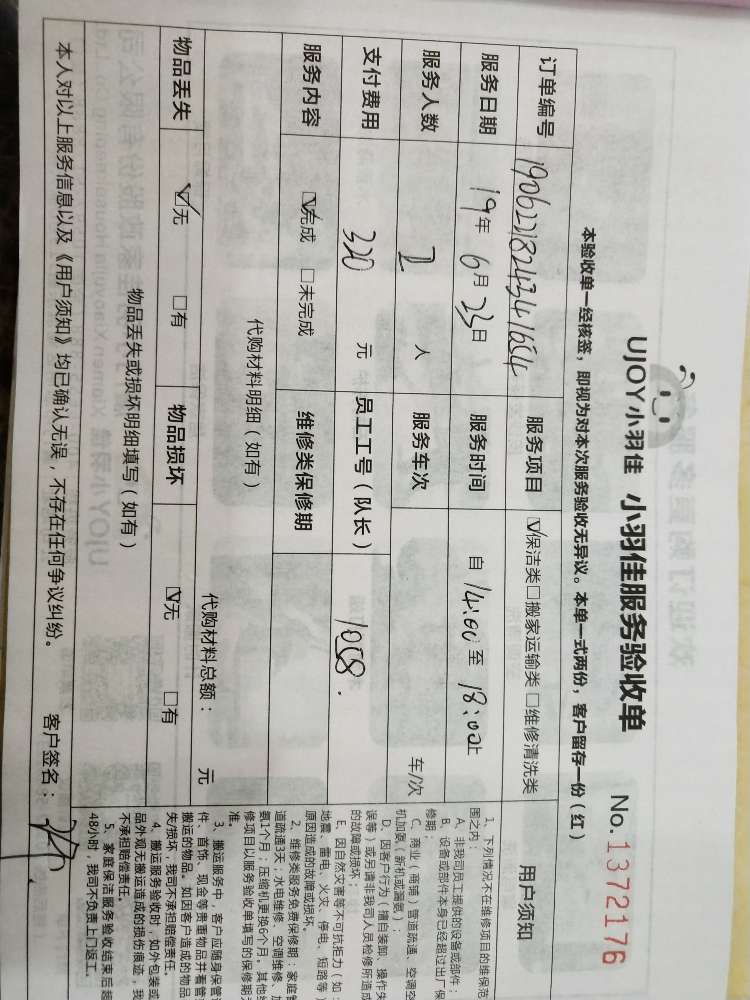 UJOY小羽佳 小羽佳服务验收单 No.1372176
本验收单一经核签，即视为对本次服务验收无异议。本单一式两份，客户留存一份（红）
订单编号 190622182434 1654 服务项目 ☑保洁类□搬家运输类□维修清洗类
服务日期 19年 6月 23日 服务时间 自 14:00 至 18:00止
服务人数 2 人 服务车次 车/次
支付费用 320 元 员工工号（队长） 1058.
服务内容 ☑完成 □未完成 维修类保修期
代购材料明细（如有） 代购材料总额： 元
物品丢失 ☑无 □有 物品损坏 ☑无 □有
物品丢失或损坏明细填写（如有）
本人对以上服务信息以及《用户须知》均已确认无误，不存在任何争议纠纷。 客户签名：
用户须知
1、下列情况不在维修项目的维保范
围之内：
A、非我司员工提供的设备或部件；
B、设备或部件本身已经超过出厂保
修期；
C、商业（商铺）管道疏通、空调空
机加氨（新机或漏氨）；
D、因客户行为（擅自装卸、操作失
误等）或另请非我司人员检修所造成
的故障或损坏；
E、因自然灾害等不可抗拒力（如：
地震、雷电、火灾、停电、短路等）
原因造成的故障或损坏。
2、维修类服务免费保修期：家庭管
道疏通3天；水电维修、空调维修、加
氨1个月；压缩机更换6个月。其他维
修项目以服务验收单填写的保修期为
准。
3、搬运服务中，客户应随身保管证
件、首饰、现金等贵重物品并看管
搬运的物品。如因客户造成的物品
失/损坏，我司不承担赔偿责任。
4、搬运服务验收时，如外包装或
品外观无搬运造成的损伤痕迹，我
不承担赔偿责任。
5、家庭保洁服务验收结束后超
48小时，我司不负责上门返工。